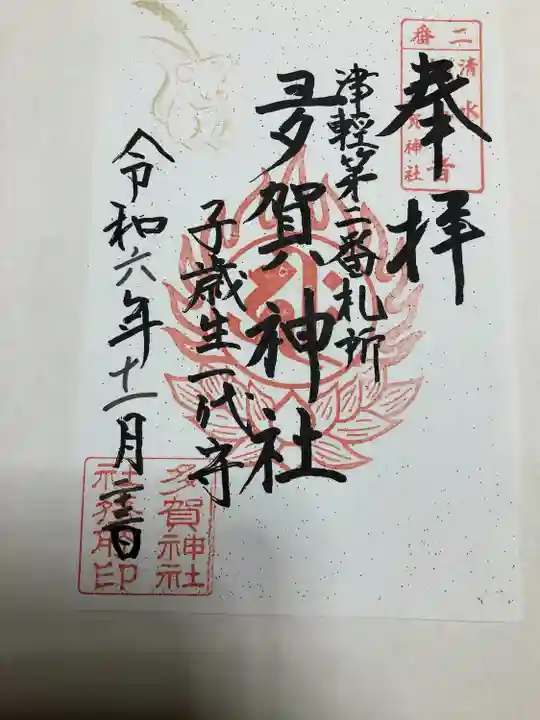 二番
清水
神社
奉拝
津軽第二番札所
多賀神社
子歳生一代守
令和六年十一月二十三日
多賀神社
社務所印